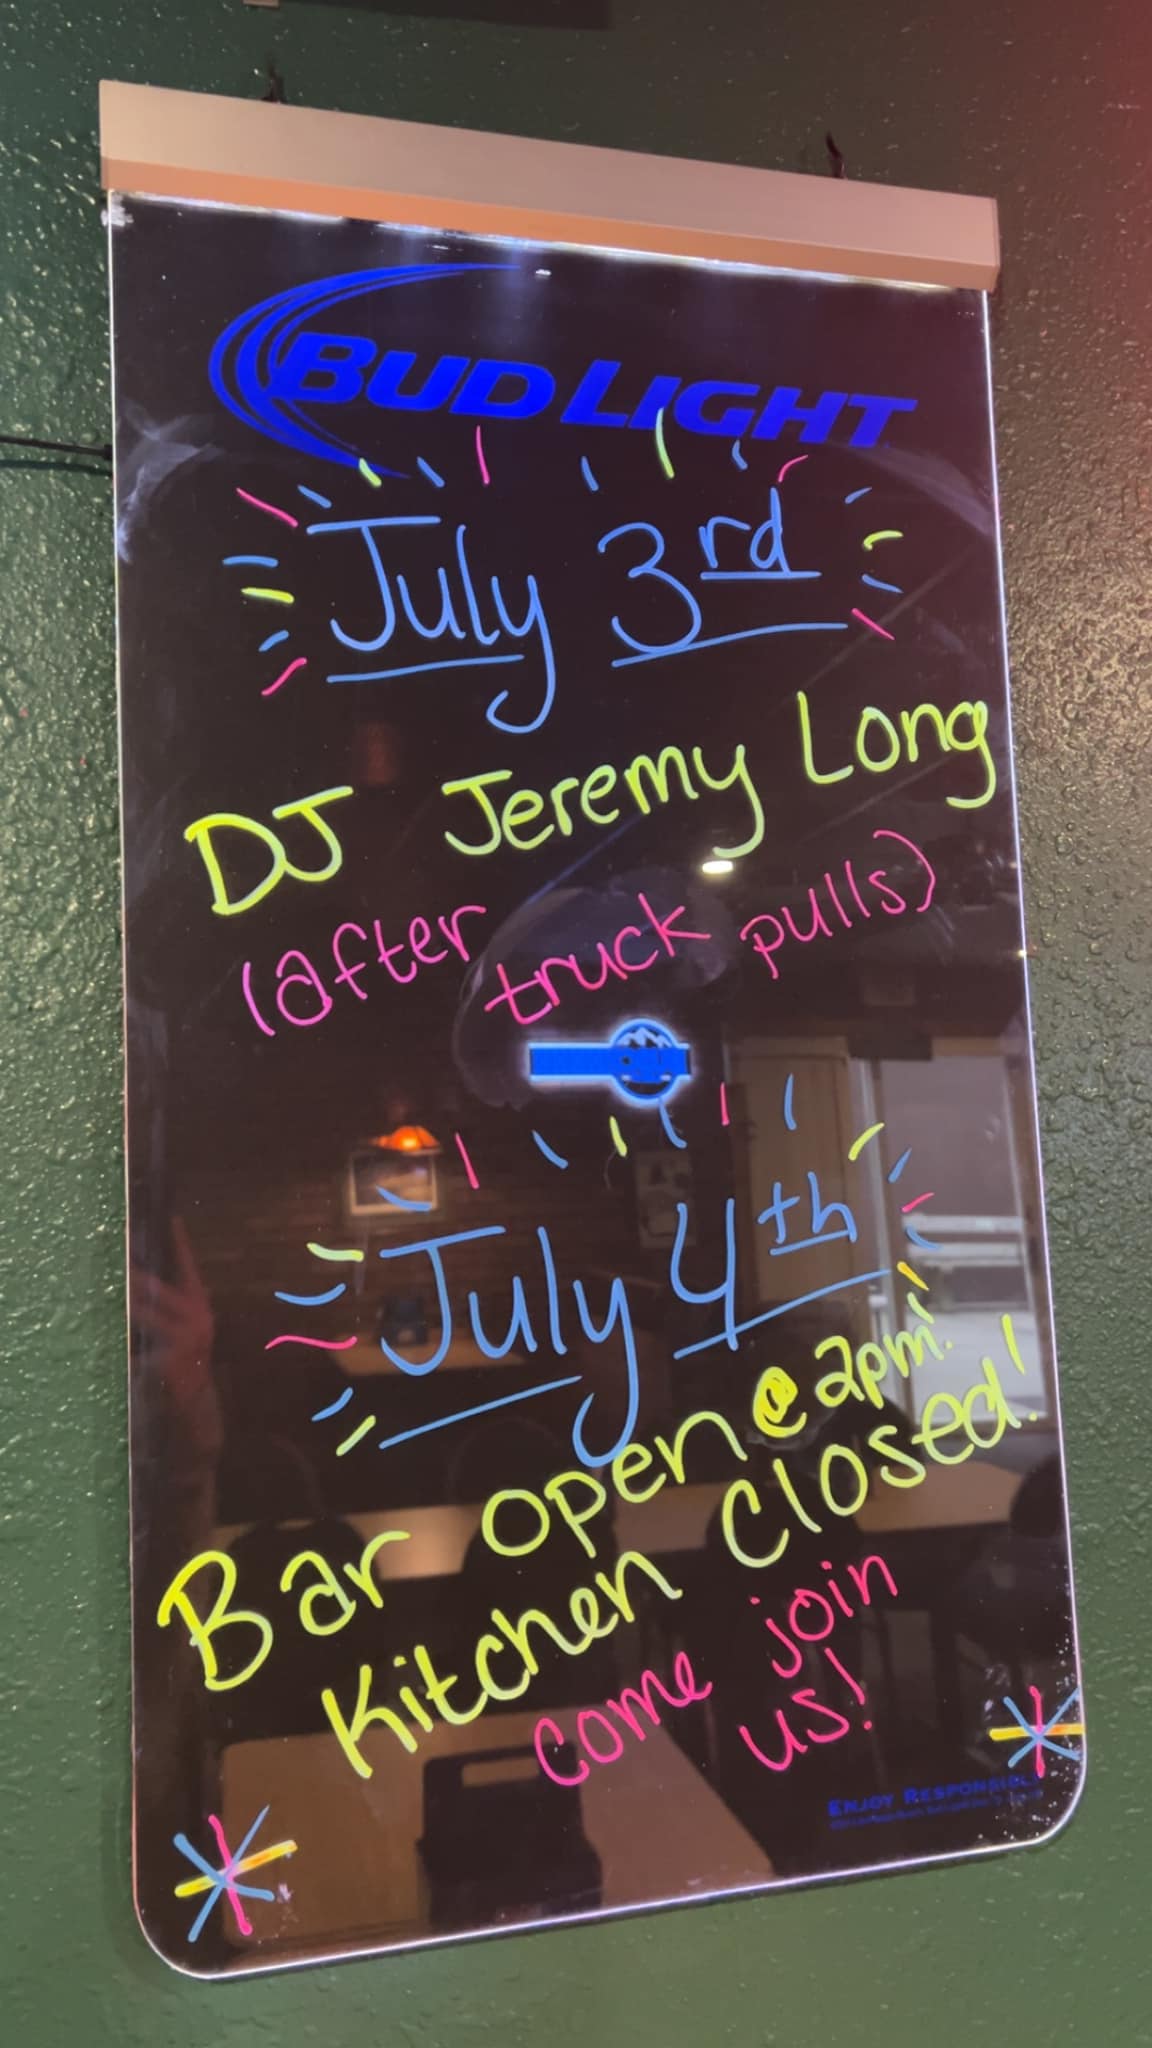 BUD LIGHT
July 3rd
DJ Jeremy Long
(after truck pulls)
July 4th
Bar open @ 2pm!
Kitchen Closed!
come join
us!
ENJOY RESPONSIBLY